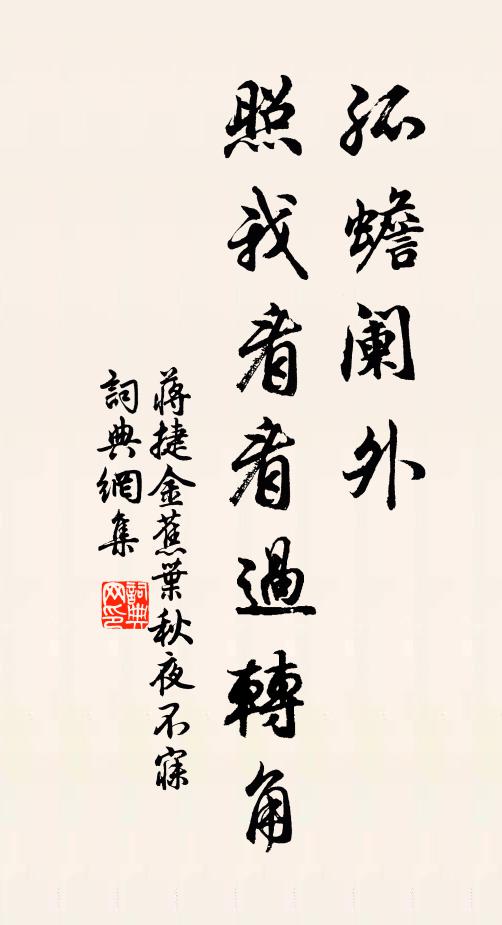 孤蟾阑外
照我看看過轉角
蔣捷金蕉葉秋夜不寐
詞典網集
詞典网印